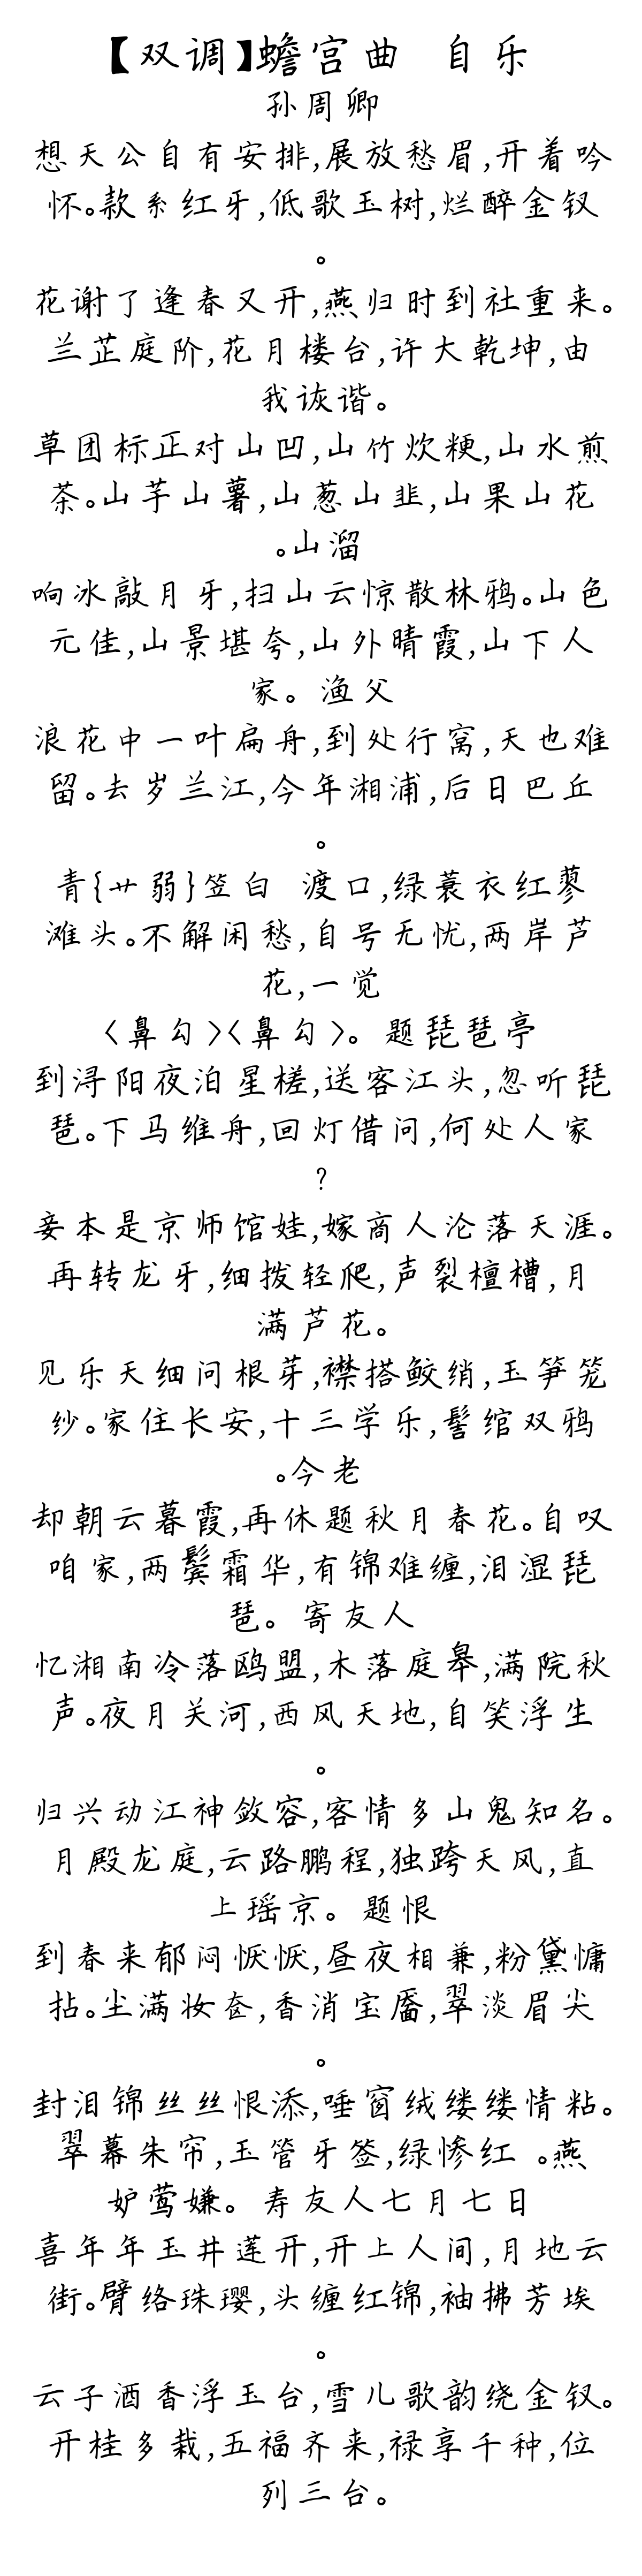 【双调】蟾宫曲 自乐
孙周卿
想天公自有安排,展放愁眉,开着吟
怀。款系红牙,低歌玉树,烂醉金钗
。
花谢了逢春又开,燕归时到社重来。
兰芷庭阶,花月楼台,许大乾坤,由
我诙谐。
草团标正对山凹,山竹炊粳,山水煎
茶。山芋山薯,山葱山韭,山果山花
。山溜
响冰敲月牙,扫山云惊散林鸦。山色
元佳,山景堪夸,山外晴霞,山下人
家。渔父
浪花中一叶扁舟,到处行窝,天也难
留。去岁兰江,今年湘浦,后日巴丘
。
青{艹弱}笠白 渡口,绿蓑衣红蓼
滩头。不解闲愁,自号无忧,两岸芦
花,一觉
〈鼻勾〉〈鼻勾〉。题琵琶亭
到浔阳夜泊星槎,送客江头,忽听琵
琶。下马维舟,回灯借问,何处人家
?
妾本是京师馆娃,嫁商人沦落天涯。
再转龙牙,细拨轻爬,声裂檀槽,月
满芦花。
见乐天细问根芽,襟搭鲛绡,玉笋笼
纱。家住长安,十三学乐,髻绾双鸦
。今老
却朝云暮霞,再休题秋月春花。自叹
咱家,两鬓霜华,有锦难缠,泪湿琵
琶。寄友人
忆湘南冷落鸥盟,木落庭皋,满院秋
声。夜月关河,西风天地,自笑浮生
。
归兴动江神敛容,客情多山鬼知名。
月殿龙庭,云路鹏程,独跨天风,直
上瑶京。题恨
到春来郁闷恹恹,昼夜相兼,粉黛慵
拈。尘满妆奁,香消宝靥,翠淡眉尖
。
封泪锦丝丝恨添,唾窗绒缕缕情粘。
翠幕朱帘,玉管牙签,绿惨红 。燕
妒莺嫌。寿友人七月七日
喜年年玉井莲开,开上人间,月地云
街。臂络珠璎,头缠红锦,袖拂芳埃
。
云子酒香浮玉台,雪儿歌韵绕金钗。
开桂多栽,五福齐来,禄享千种,位
列三台。